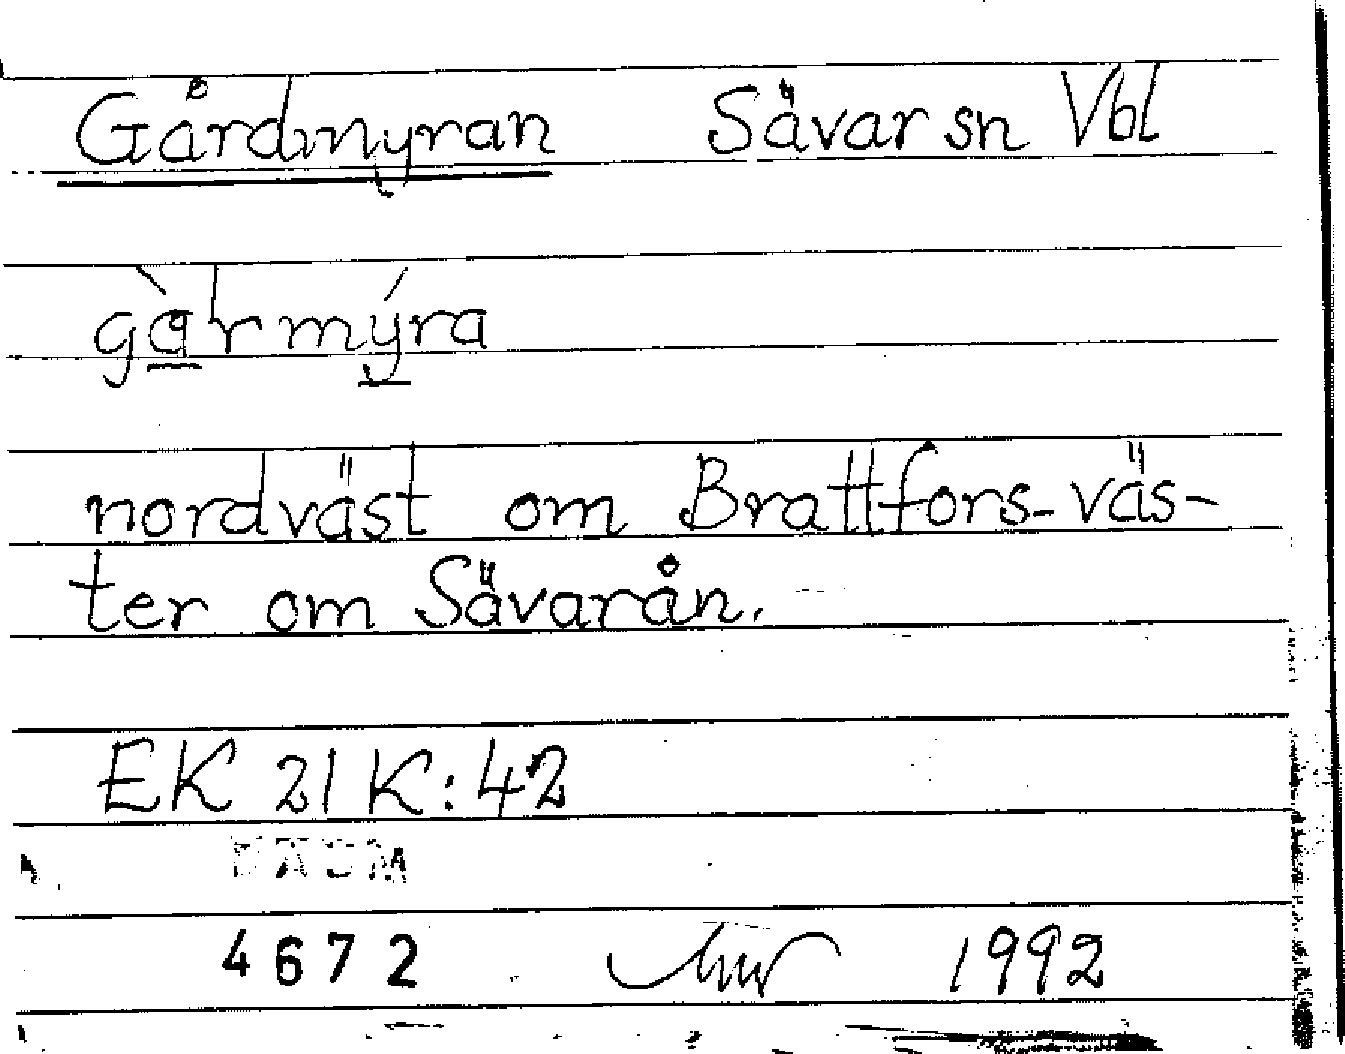 Gårdmyran Sävar sn Vbl
gà̱ˈrmý̱ra
nordväst om Brattfors- väs-
ter om Sävarån.
EK 21 K:42
DAUM
4672 1992